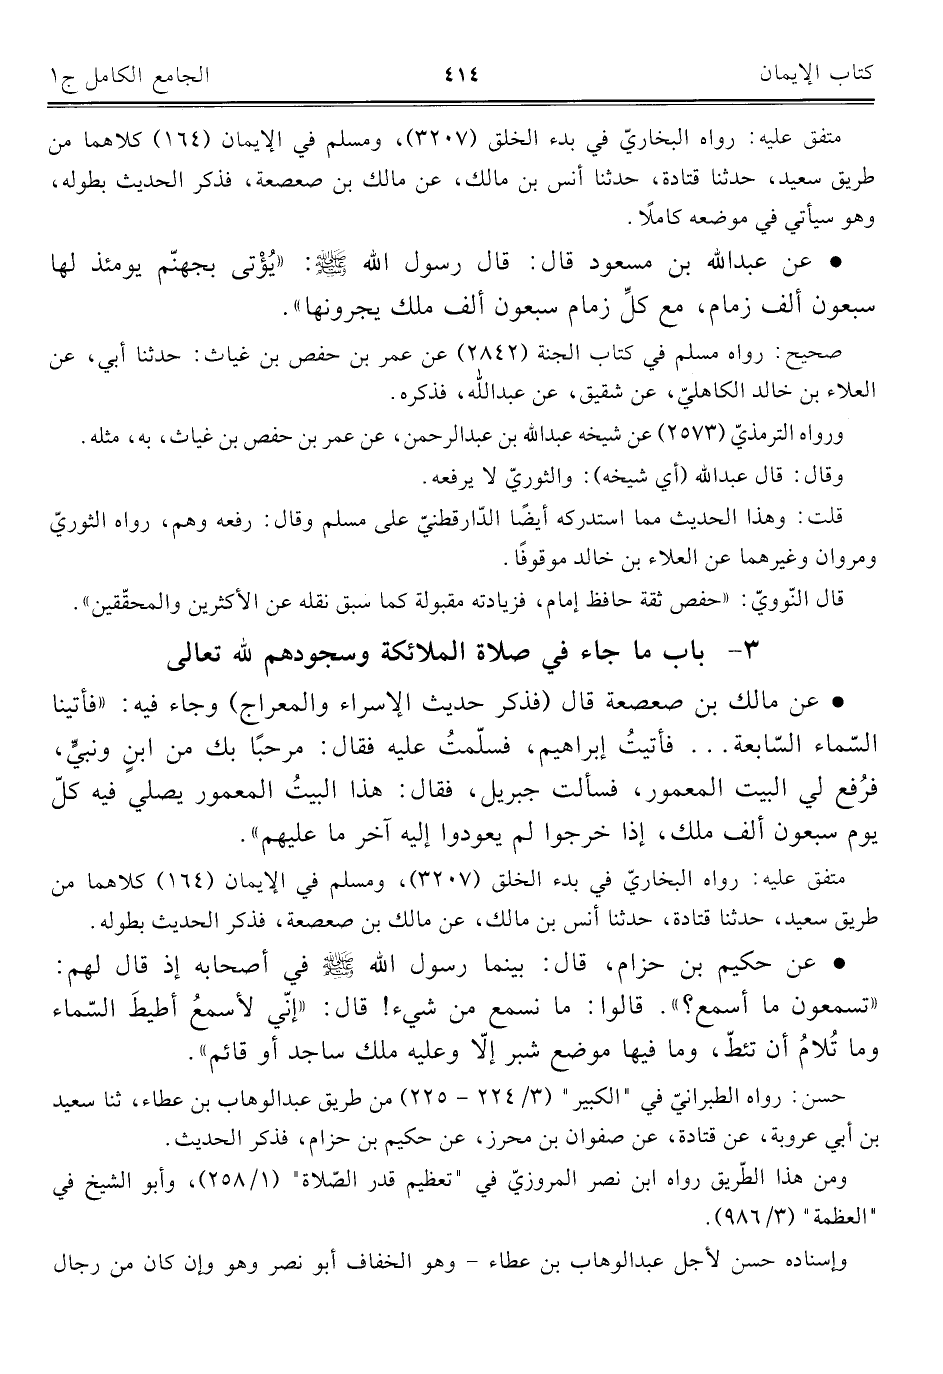 كتاب الإيمان ٤١٤ الجامع الكامل ج١
متفق عليه: رواه البخاريّ في بدء الخلق (٣٢٠٧)، ومسلم في الإيمان (١٦٤) كلاهما من
طريق سعيد، حدثنا قتادة، حدثنا أنس بن مالك، عن مالك بن صعصعة، فذكر الحديث بطوله،
وهو سيأتي في موضعه كاملًا.
• عن عبدالله بن مسعود قال: قال رسول الله ﷺ: «يُؤْتى بجهنّم يومئذ لها
سبعون ألف زمام، مع كلِّ زمام سبعون ألف ملك يجرونها».
صحيح: رواه مسلم في كتاب الجنة (٢٨٤٢) عن عمر بن حفص بن غياث: حدثنا أبي، عن
العلاء بن خالد الكاهليّ، عن شقيق، عن عبدالله، فذكره.
ورواه الترمذيّ (٢٥٧٣) عن شيخه عبدالله بن عبدالرحمن، عن عمر بن حفص بن غياث، به، مثله.
وقال: قال عبدالله (أي شيخه): والثوريّ لا يرفعه.
قلت: وهذا الحديث مما استدركه أيضًا الدّارقطنيّ على مسلم وقال: رفعه وهم، رواه الثوريّ
ومروان وغيرهما عن العلاء بن خالد موقوفًا.
قال النّوويّ: «حفص ثقة حافظ إمام، فزيادته مقبولة كما سبق نقله عن الأكثرين والمحقّقين».
٣- باب ما جاء في صلاة الملائكة وسجودهم لله تعالى
• عن مالك بن صعصعة قال (فذكر حديث الإسراء والمعراج) وجاء فيه: «فأتينا
السّماء السّابعة... فأتيتُ إبراهيم، فسلّمتُ عليه فقال: مرحبًا بك من ابنٍ ونبيٍّ،
فرُفع لي البيت المعمور، فسألت جبريل، فقال: هذا البيتُ المعمور يصلي فيه كلّ
يوم سبعون ألف ملك، إذا خرجوا لم يعودوا إليه آخر ما عليهم».
متفق عليه: رواه البخاريّ في بدء الخلق (٣٢٠٧)، ومسلم في الإيمان (١٦٤) كلاهما من
طريق سعيد، حدثنا قتادة، حدثنا أنس بن مالك، عن مالك بن صعصعة، فذكر الحديث بطوله.
• عن حكيم بن حزام، قال: بينما رسول الله ﷺ في أصحابه إذ قال لهم:
«تسمعون ما أسمع؟». قالوا: ما نسمع من شيء! قال: «إنّي لأسمعُ أطيطَ السّماء
وما تُلامُ أن تئطّ، وما فيها موضع شبر إلّا وعليه ملك ساجد أو قائم».
حسن: رواه الطبرانيّ في "الكبير" (٣/ ٢٢٤ - ٢٢٥) من طريق عبدالوهاب بن عطاء، ثنا سعيد
بن أبي عروبة، عن قتادة، عن صفوان بن محرز، عن حكيم بن حزام، فذكر الحديث.
ومن هذا الطّريق رواه ابن نصر المروزيّ في "تعظيم قدر الصّلاة" (١/ ٢٥٨)، وأبو الشيخ في
"العظمة" (٣/ ٩٨٦).
وإسناده حسن لأجل عبدالوهاب بن عطاء - وهو الخفاف أبو نصر وهو وإن كان من رجال